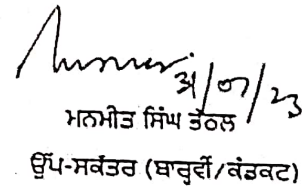 31/07/23
ਮਨਮੀਤ ਸਿੰਘ ਭੱਠਲ
ਉੱਪ-ਸਕੱਤਰ (ਬਾਰ੍ਹਵੀਂ/ਕੰਡਕਟ)